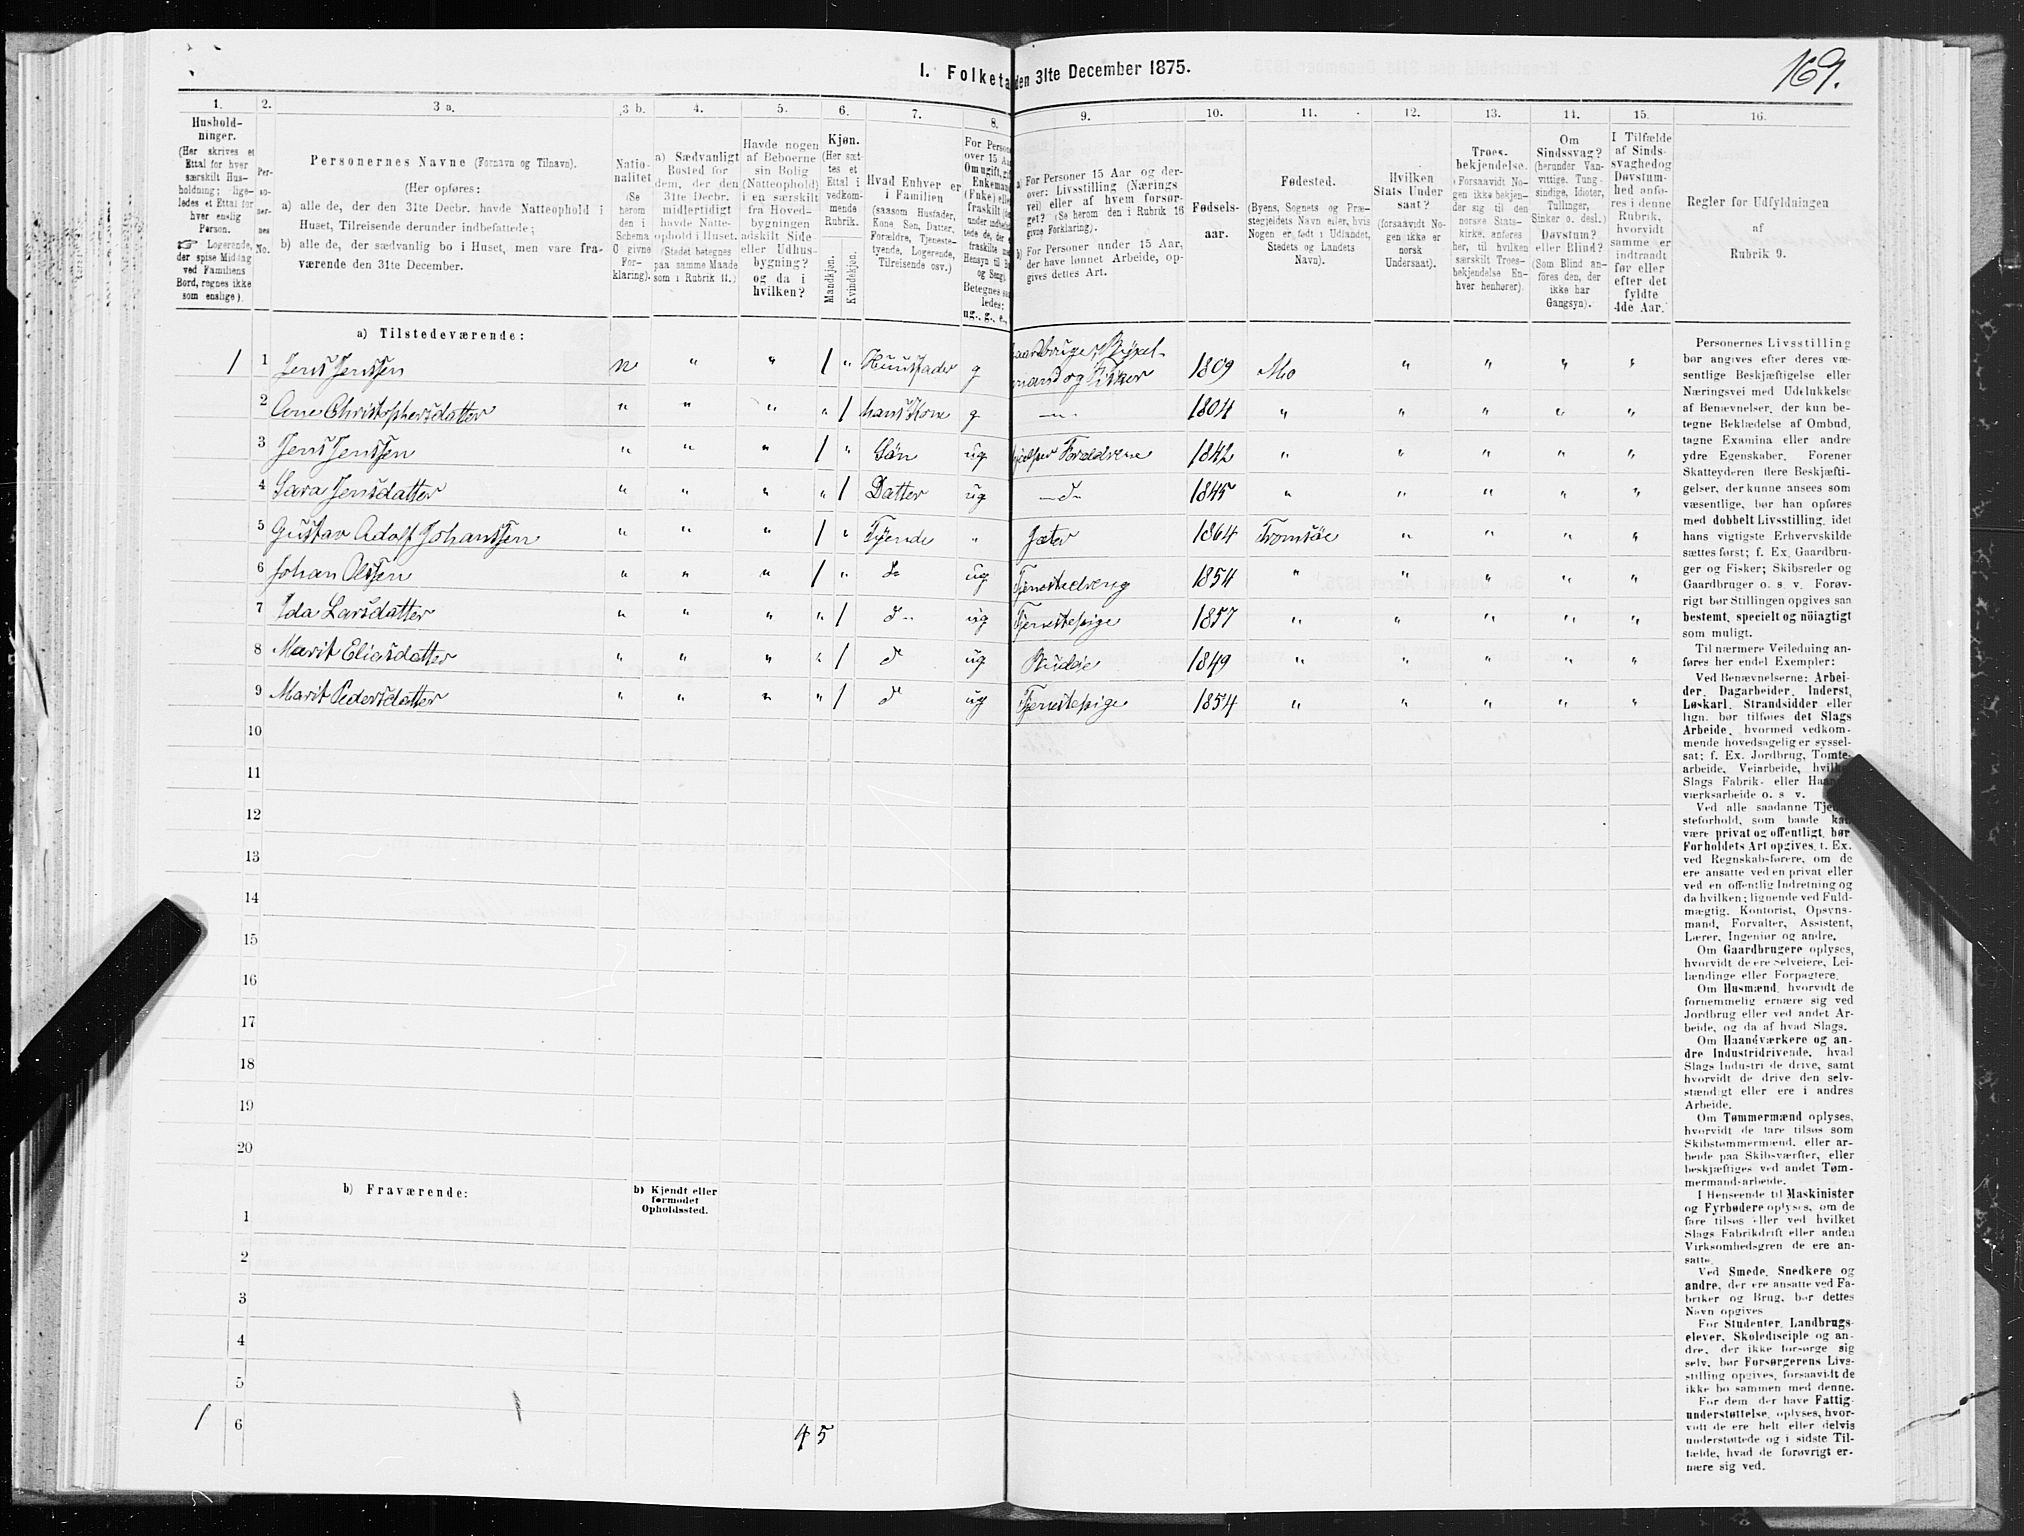 169.
1. Folketa den 31te December 1875.
1. 2. 3 a. 3 b. 4. 5. 6. 7. 8. 9. 10. 11. 12. 13. 14. 15. 16.
Hushold-
ninger.
(Her skrives et
Ettal for hver
særskilt Hus-
holdning; lige-
ledes et Ettal for
hver enslig
Person.
☞ Logerende,
der spise Middag
ved Familiens
Bord, regnes ikke
som enslige).
Per-
so-
ner-
nes
No.
Personernes Navne (Fornavn og Tilnavn).
(Her opføres:
a) alle de, der den 31te Decbr. havde Natteophold i
Huset, Tilreisende derunder indbefattede;
b) alle de, der sædvanlig bo i Huset, men vare fra-
værende den 31te December.
Natio-
nalitet
(Se
herom
den i
Schema
O givne
For-
klaring).
a) Sædvanligt
Bosted for
dem, der den
31te Decbr.
midlertidigt
havde Natte-
ophold i Huset.
(Stedet betegnes
paa samme Maade
som i Rubrik 11.)
Havde nogen
af Beboerne
sin Bolig
(Natteophold)
i en særskilt
fra Hoved-
bygningen
adskilt Side-
eller Udhus-
bygning?
og da i
hvilken?
Kjøn.
(Her sæt-
tes et
Ettal i
vedkom-
mende
Rubrik.
Mandkjøn.
Kvindekjøn.
Hvad Enhver er
i Familien
(saasom Husfader,
Kone, Søn, Datter,
Forældre, Tjeneste-
tyende, Logerende,
Tilreisende osv.)
For Person
over 15 Aa
Om ugift, gif
Enkemand
(Enke) elle
fraskilt (de
Betegnes saa
ledes:
ug., g., e.,
a) For Personer 15 Aar og der-
over: Livsstilling (Nærings
vei) eller af hvem forsør-
get? (Se herom den i Rubrik 16
givne Forklaring).
b) For Personer under 15 Aar,
der have lønnet Arbeide, op-
gives dettes Art.
Fødsels-
aar.
Fødested.
(Byens, Sognets og Præ-
stegjeldets Navn eller, hvis
Nogen er født i Udlandet,
Stedets og Landets
Navn).
Hvilken
Stats Under
saat?
(forsaavidt No-
gen ikke er
norsk
Undersaat).
Troes-
bekjendelse.
(Forsaavidt No-
gen ikke bekjen-
der sig til den
norske Stats-
kirke, anføres
her, til hvilken
særskilt Troes-
bekjendelse En-
hver henhører).
Om
Sindssvag?
(herunder Van-
vittige, Tung-
sindige, Idioter,
Tullinger,
Sinker o. desl.)
Døvstum?
eller Blind?
(Som Blind an-
føres den, der
ikke har
Gangsyn).
I Tilfælde
af Sinds-
svaghedog
Døvstum-
hed anfø-
res i denne
Rubrik,
hvorvidt
samme er
indtraadt
før eller
efter det
fyldte
4de Aar.
Regler for Udfyldningen
af
Rubrik 9.
a) Tilstedeværende:
1 1 Jens Jenssen n " " 1 " Huusfader g aardbruger, Byxel-
mand og Fisker 1809 Mo " " " "
2 Ane Christophersdatter " " " " 1 hans Kone g —"— 1804 " " " " "
3 Jens Jenssen " " " 1 " Søn ug hjelper Forældrene 1842 " " " " "
4 Sara Jensdatter " " " " 1 Datter ug —d— 1845 " " " " "
5 Gustav Adolf Johanssen " " " 1 " Tyende " Gjæter 1864 Tromsøe " " " "
6 Johan Olssen " " " 1 " d— ug Tjenestedreng 1854 " " " " "
7 Ida Larsdatter " " " " 1 d— ug Tjenestepige 1857 " " " " "
8 Marit Eliasdatter " " " " 1 d ug Budeie 1849 " " " " "
9 Marit Pedersdatter " " " " 1 d ug Tjenestepige 1854 " " " " "
10
11
12
13
14
15
16
17
18
19
20
b) Fraværende:
b) Kjendt eller
formodet
Opholdssted.
1
2
3
4
5
1 6 4 5
Personernes Livsstilling
bør angives efter deres væ-
sentlige Beskjæftigelse eller
Næringsvei med Udelukkelse
af Benævnelser, der kun be-
tegne Beklædelse af Ombud,
tagne Examina eller andre
ydre Egenskaber. Forener
Skatteyderen flere Beskjæfti-
gelser, der kunne ansees som
væsentlige, bør han opføres
med dobbelt Livsstilling, idet
hans vigtigste Erhvervskilde
sættes først; f. Ex. Gaardbru-
ger og Fisker; Skibsreder og
Gaardbruger o. s. v. Forøv-
rigt bør Stillingen opgives saa
bestemt, specielt og nöiagtigt
som muligt.
Til nærmere Veiledning an-
føres her endel Exempler:
Ved Benævnelserne: Arbei-
der, Dagarbeider, Inderst,
Løskarl, Strandsidder eller
lign. bør tilføies det Slags
Arbeide, hvormed vedkom-
mende hovedsagelig er syssel-
sat; f. Ex. Jordbrug, Tomte-
arbeide, Veiarbeide, hvilke
Slags Fabrik- eller Haand
værksarbeide o. s v.
Ved alle saadanne Tjene
steforhold, som baade kan
være privat og offentligt, bør
Forholdets Art opgives, f. Ex.
ved Regnskabsførere, om de
ere ansatte ved en privat eller
ved en offentlig Indretning og
da hvilken; lignende ved Fuld-
mægtig, Kontorist, Opsyns-
mand, Forvalter, Assistent,
Lærer, Ingeniør og andre.
Om Gaardbrugere oplyses,
hvorvidt de ere Selveiere, Lei-
lændinge eller Forpagtere.
Om Husmænd, hvorvidt de
fornemmelig ernære sig ved
Jordbrug eller ved andet Ar-
beide, og da af hvad Slags.
Om Haandværkere og an-
dre Industridrivende, hvad
Slags Industri de drive, samt
hvorvidt de drive den selv-
stændigt eller ere i andres
Arbeide.
Om Tømmermænd oplyses,
hvorvidt de fare tilsøs som
Skibstømmermænd, eller ar-
beide paa Skibsværfter, eller
beskjæftiges ved andet Tøm-
mermand-arbeide.
I Henseende til Maskinister
og Fyrbødere oplyses, om de
fare tilsøs eller ved hvilket
Slags Fabrikdrift eller anden
Virksomhedsgren de ere an-
satte.
Ved Smede, Snedkere og
andre, der ere ansatte ved Fa-
briker og Brug, bør dettes
Navn opgives
For Studenter, Landbrugs-
elever, Skoledisciple og an-
dre, der ikke forsørge sig
selv, bør Forsørgerens Livs-
stilling opgives, forsaavidt de
ikke bo sammen med denne.
For dem, der have Fattig-
understøttelse, oplyses, hvor-
vidt de ere helt eller delvis
understøttede og i sidste Til-
fælde, hvad de forøvrigt er-
nære sig ved.